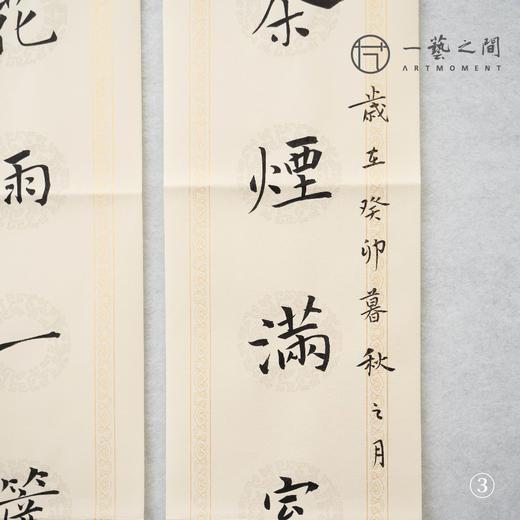 一藝之間
ARTMOMENT
歲在癸卯暮秋之月
茶煙滿
花雨一簾
③